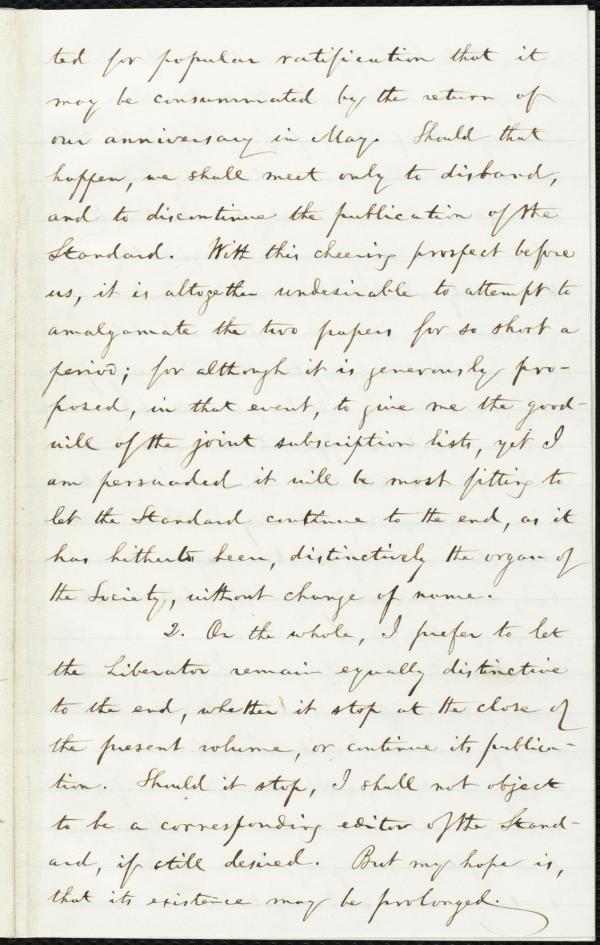 ted for popular ratification that it
may be consummated by the return of
our anniversary in May. Should that
happen, we shall meet only to disband,
and to discontinue the publication of the
Standard. With this cheering prospect before
us, it is altogether undesirable to attempt to
amalgamate the two papers for so short a
period; for although it is generously pro-
posed, in that event, to give me the good-
will of the joint subscription lists, yet I
am persuaded it will be most fitting to
let the Standard continue to the end, as it
has hitherto been, distinctively the organ of
the Society, without change of name.
2. On the whole, I prefer to let
the Liberator remain equally distinctive
to the end, whether it stop at the close of
the present volume, or continue its publica-
tion. Should it stop, I shall not object
to be a corresponding editor of the Stand-
ard, if still desired. But my hope is,
that its existence may be prolonged.